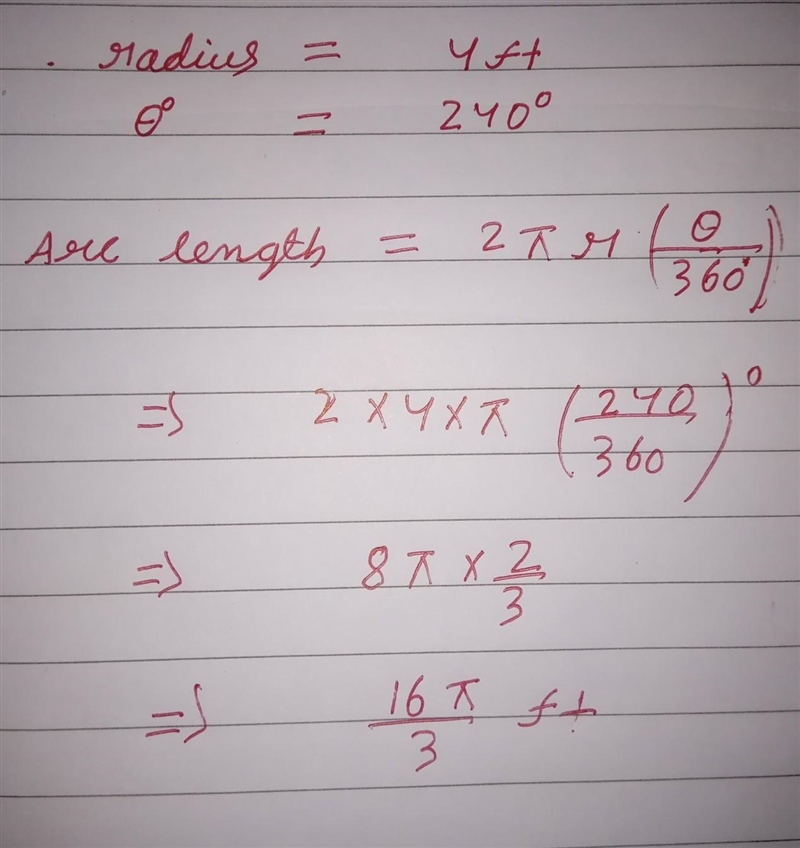 . radius = 4ft
θ° = 240°
Arc length = 2πr(θ/360°)
=> 2×4×π (240/360)°
=> 8π × 2/3
=> 16π/3 ft